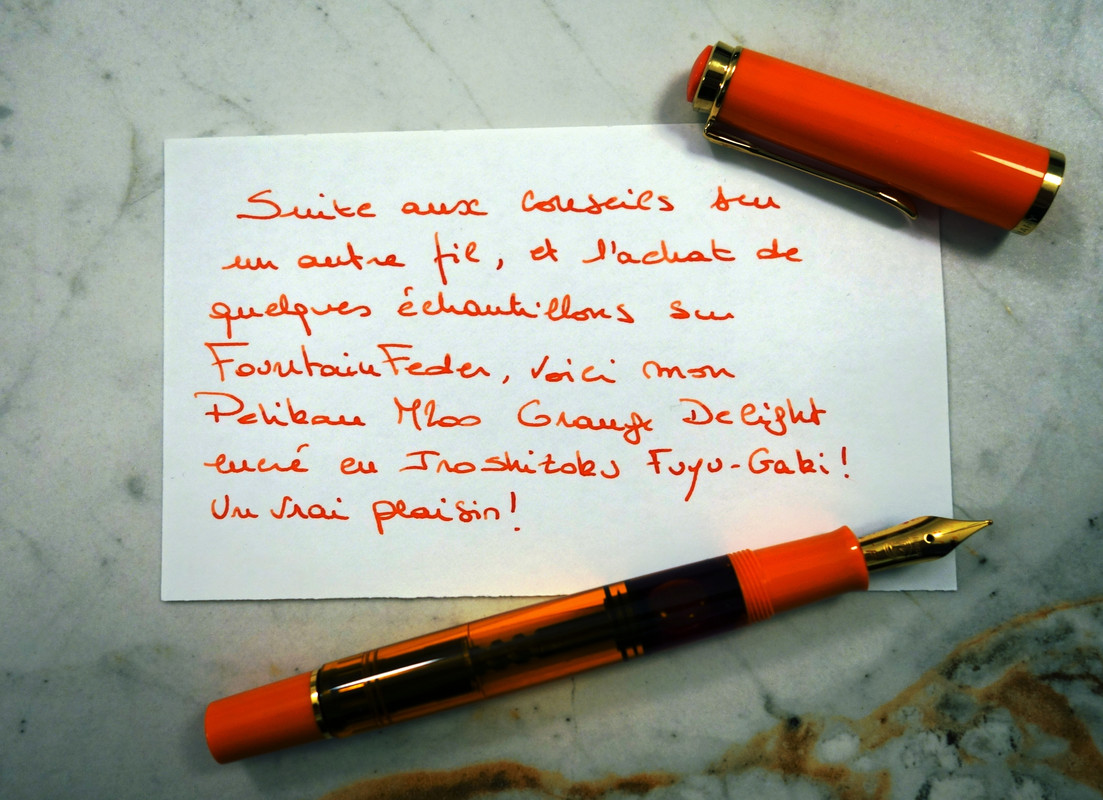 Suite aux conseils sur
un autre fil, et l'achat de
quelques échantillons sur
FountainFeder, voici mon
Pelikan M200 Orange Delight
encré en Iroshizoku Fuyu-Gaki!
Un vrai plaisir!